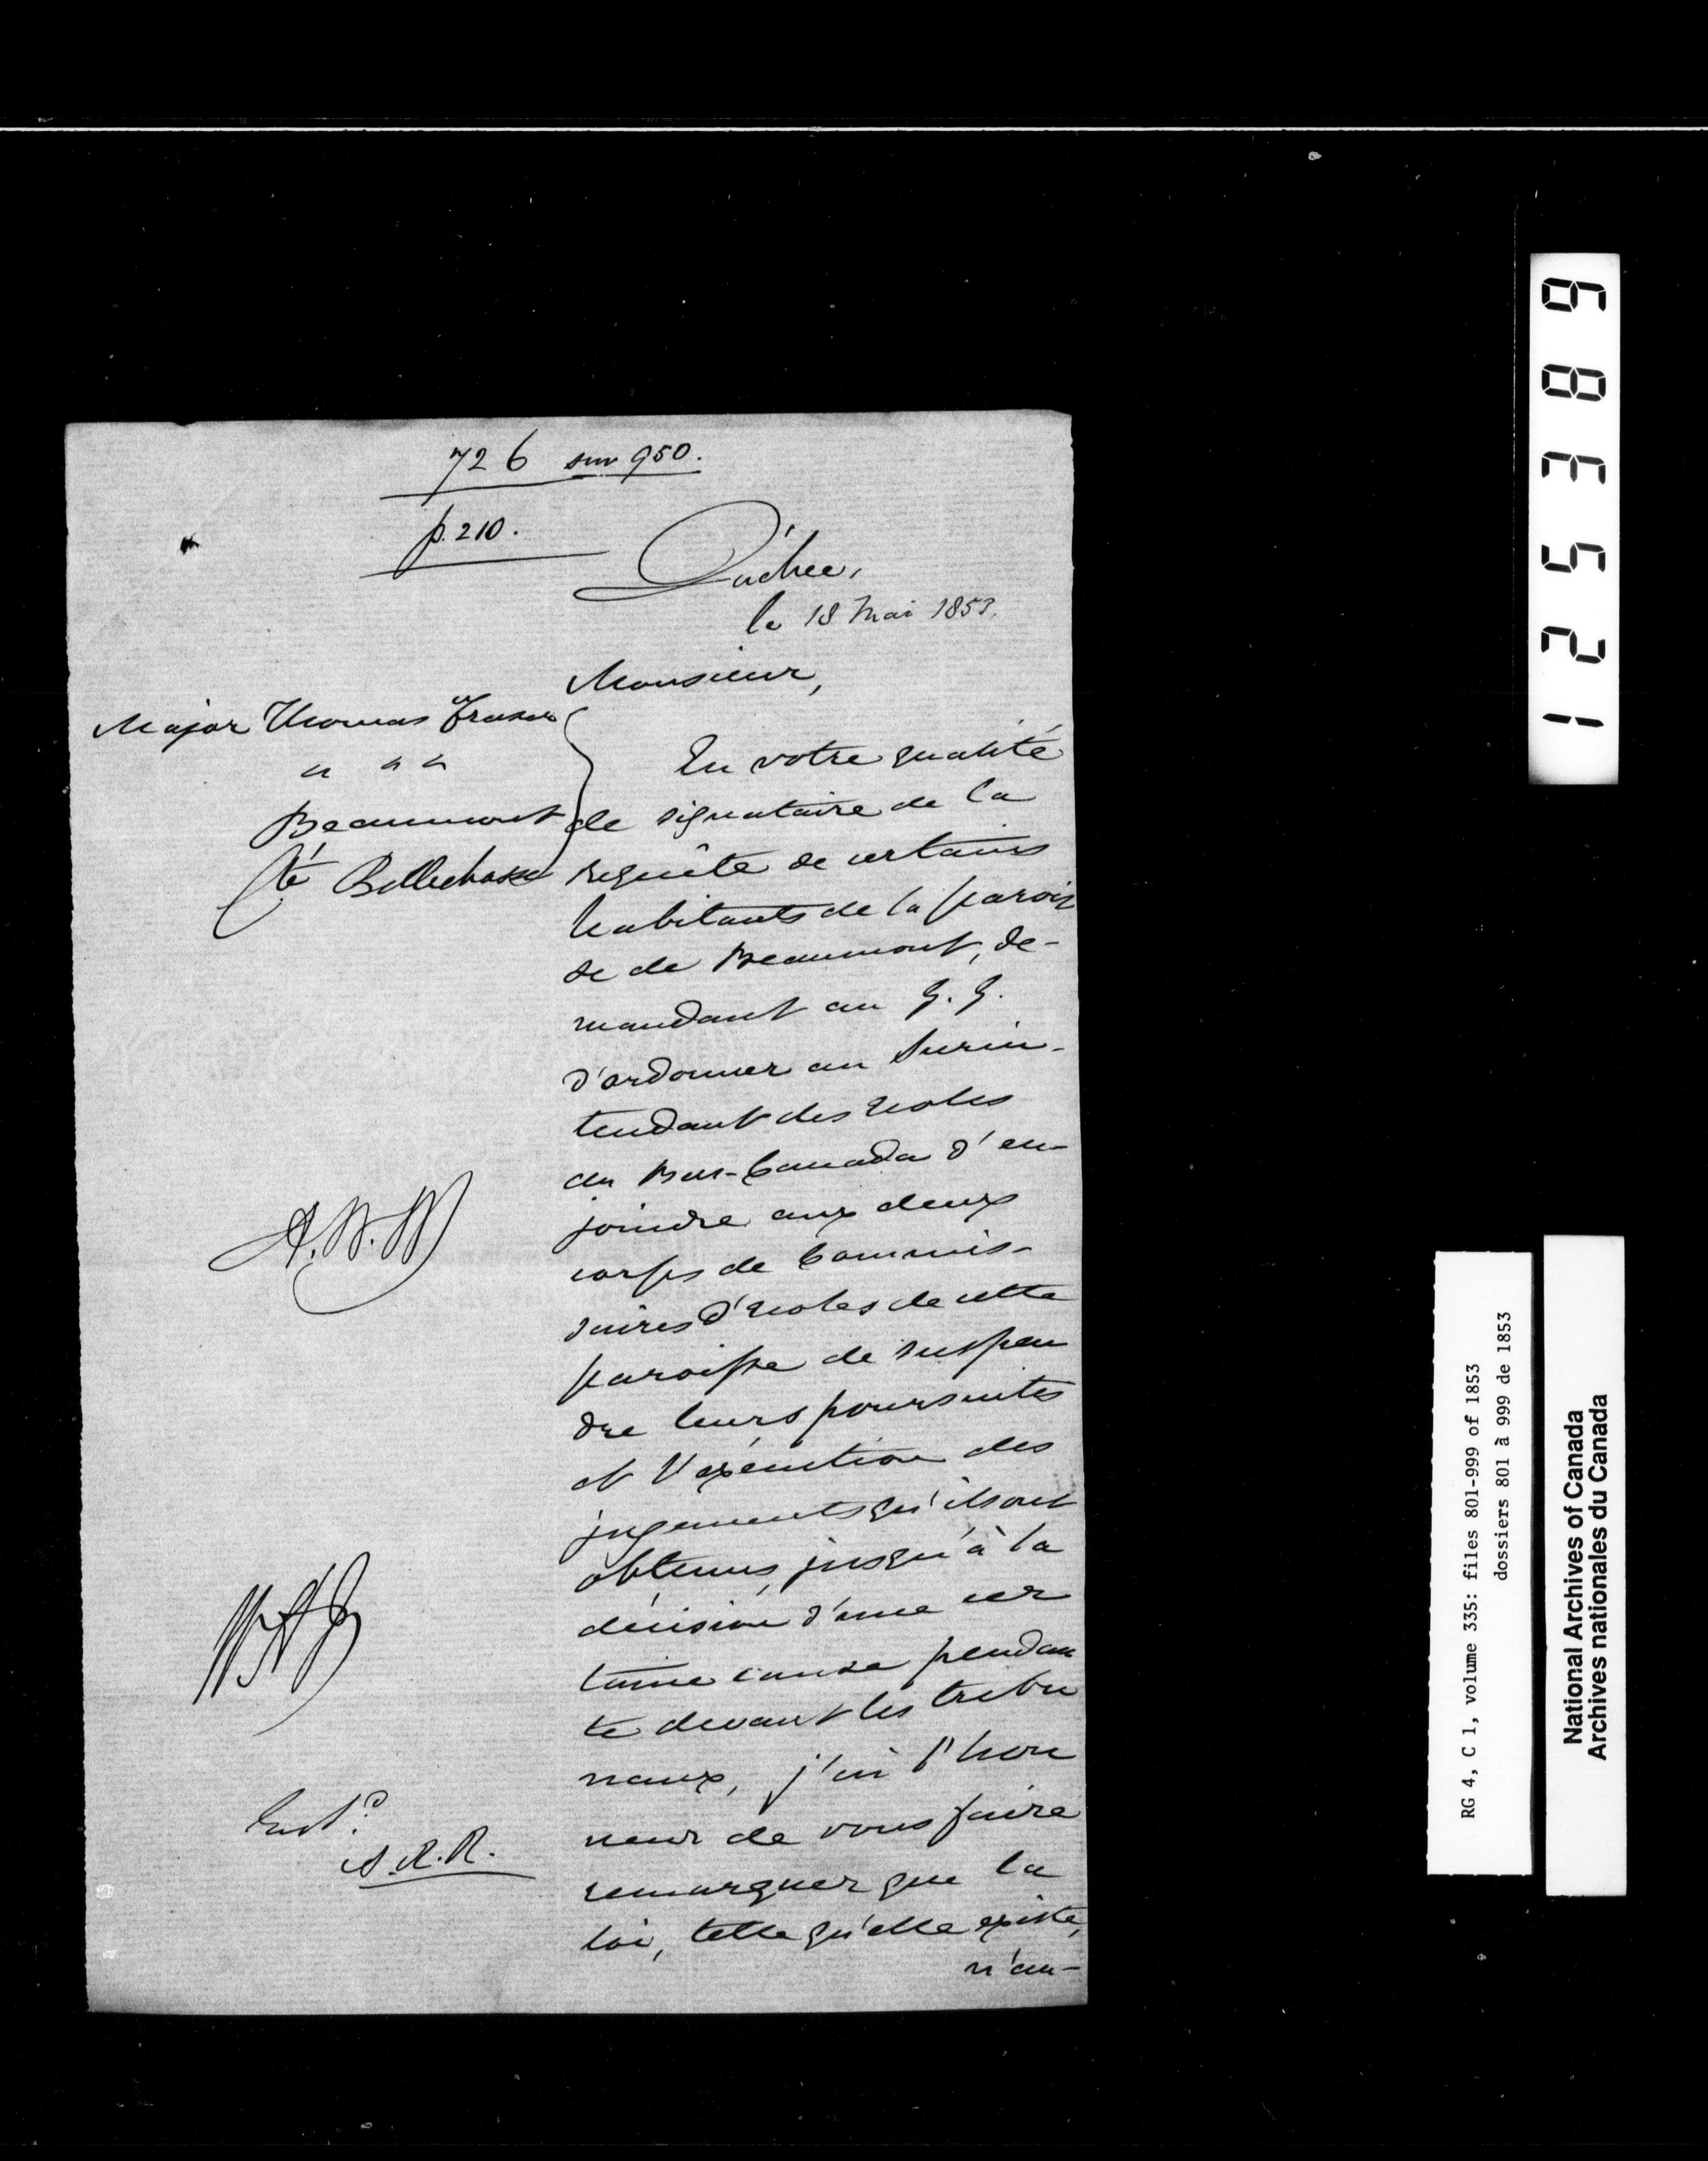 726 sur 950.
p. 210.
Québec,
le 18 Mai 1853.
Monsieur,
Major Thomas Fraser
" " "
Beaumont
Cté Bellechasse
En votre qualité
de signataire de la
requête de certains
habitants de la parois
se de Beaumont, de-
mandant au G. G.
d'ordonner au Surin-
tendant des Ecoles
du Bas-Canada d'en-
joindre aux deux
corps de Commis-
saires d'Ecoles de cette
paroisse de suspen
dre leurs poursuites
et l'exécution des
jugements qu'ils ont
obtenus, jusqu'à la
décision d'une cer
taine cause pendan
te devant les tribu
naux, j'ai l'hon
neur de vous faire
remarquer que la
loi, telle qu'elle existe,
n'au-
A. N. M
Entd.
A. R. R.
125389
RG 4, C 1, volume 335: files 801-999 of 1853
dossiers 801 à 999 de 1853
National Archives of Canada
Archives nationales du Canada